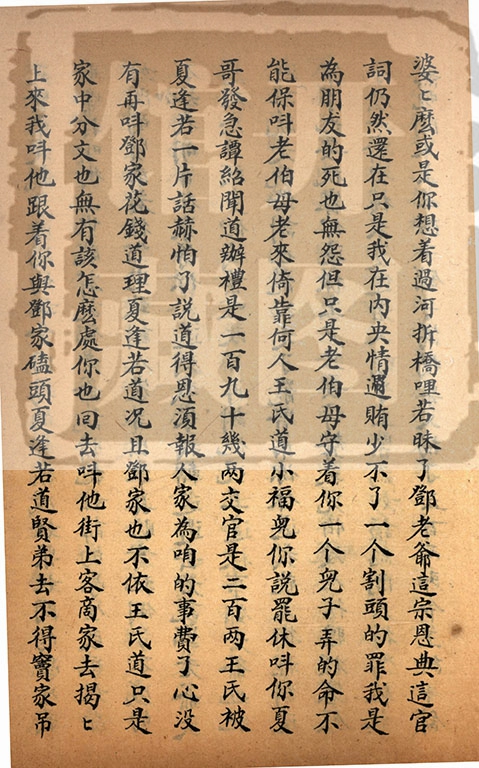 婆〻麽或是你想着過河拆橋哩若昧了鄧老爺這宗恩典這官
詞仍然還在只是我在内央情過賄少不了一个割頭的罪我是
為朋友的死也無怨但只是老伯母守着你一个兒子弄的命不
能保呌老伯母老來倚靠何人王氏道小福兒你說罷休呌你夏
哥發急譚紹聞道辦禮是一百九十幾兩交官是二百兩王氏被
夏逢若一片話赫怕了說道得恩湏報人家為咱的事費了心没
有再呌鄧家花錢道理夏逢若道况且鄧家也不依王氏道只是
家中分文也無有該怎麽處你也回去呌他街上客商家去揭〻
上來我呌他跟着你與鄧家磕頭夏逢若道賢弟去不得竇家吊